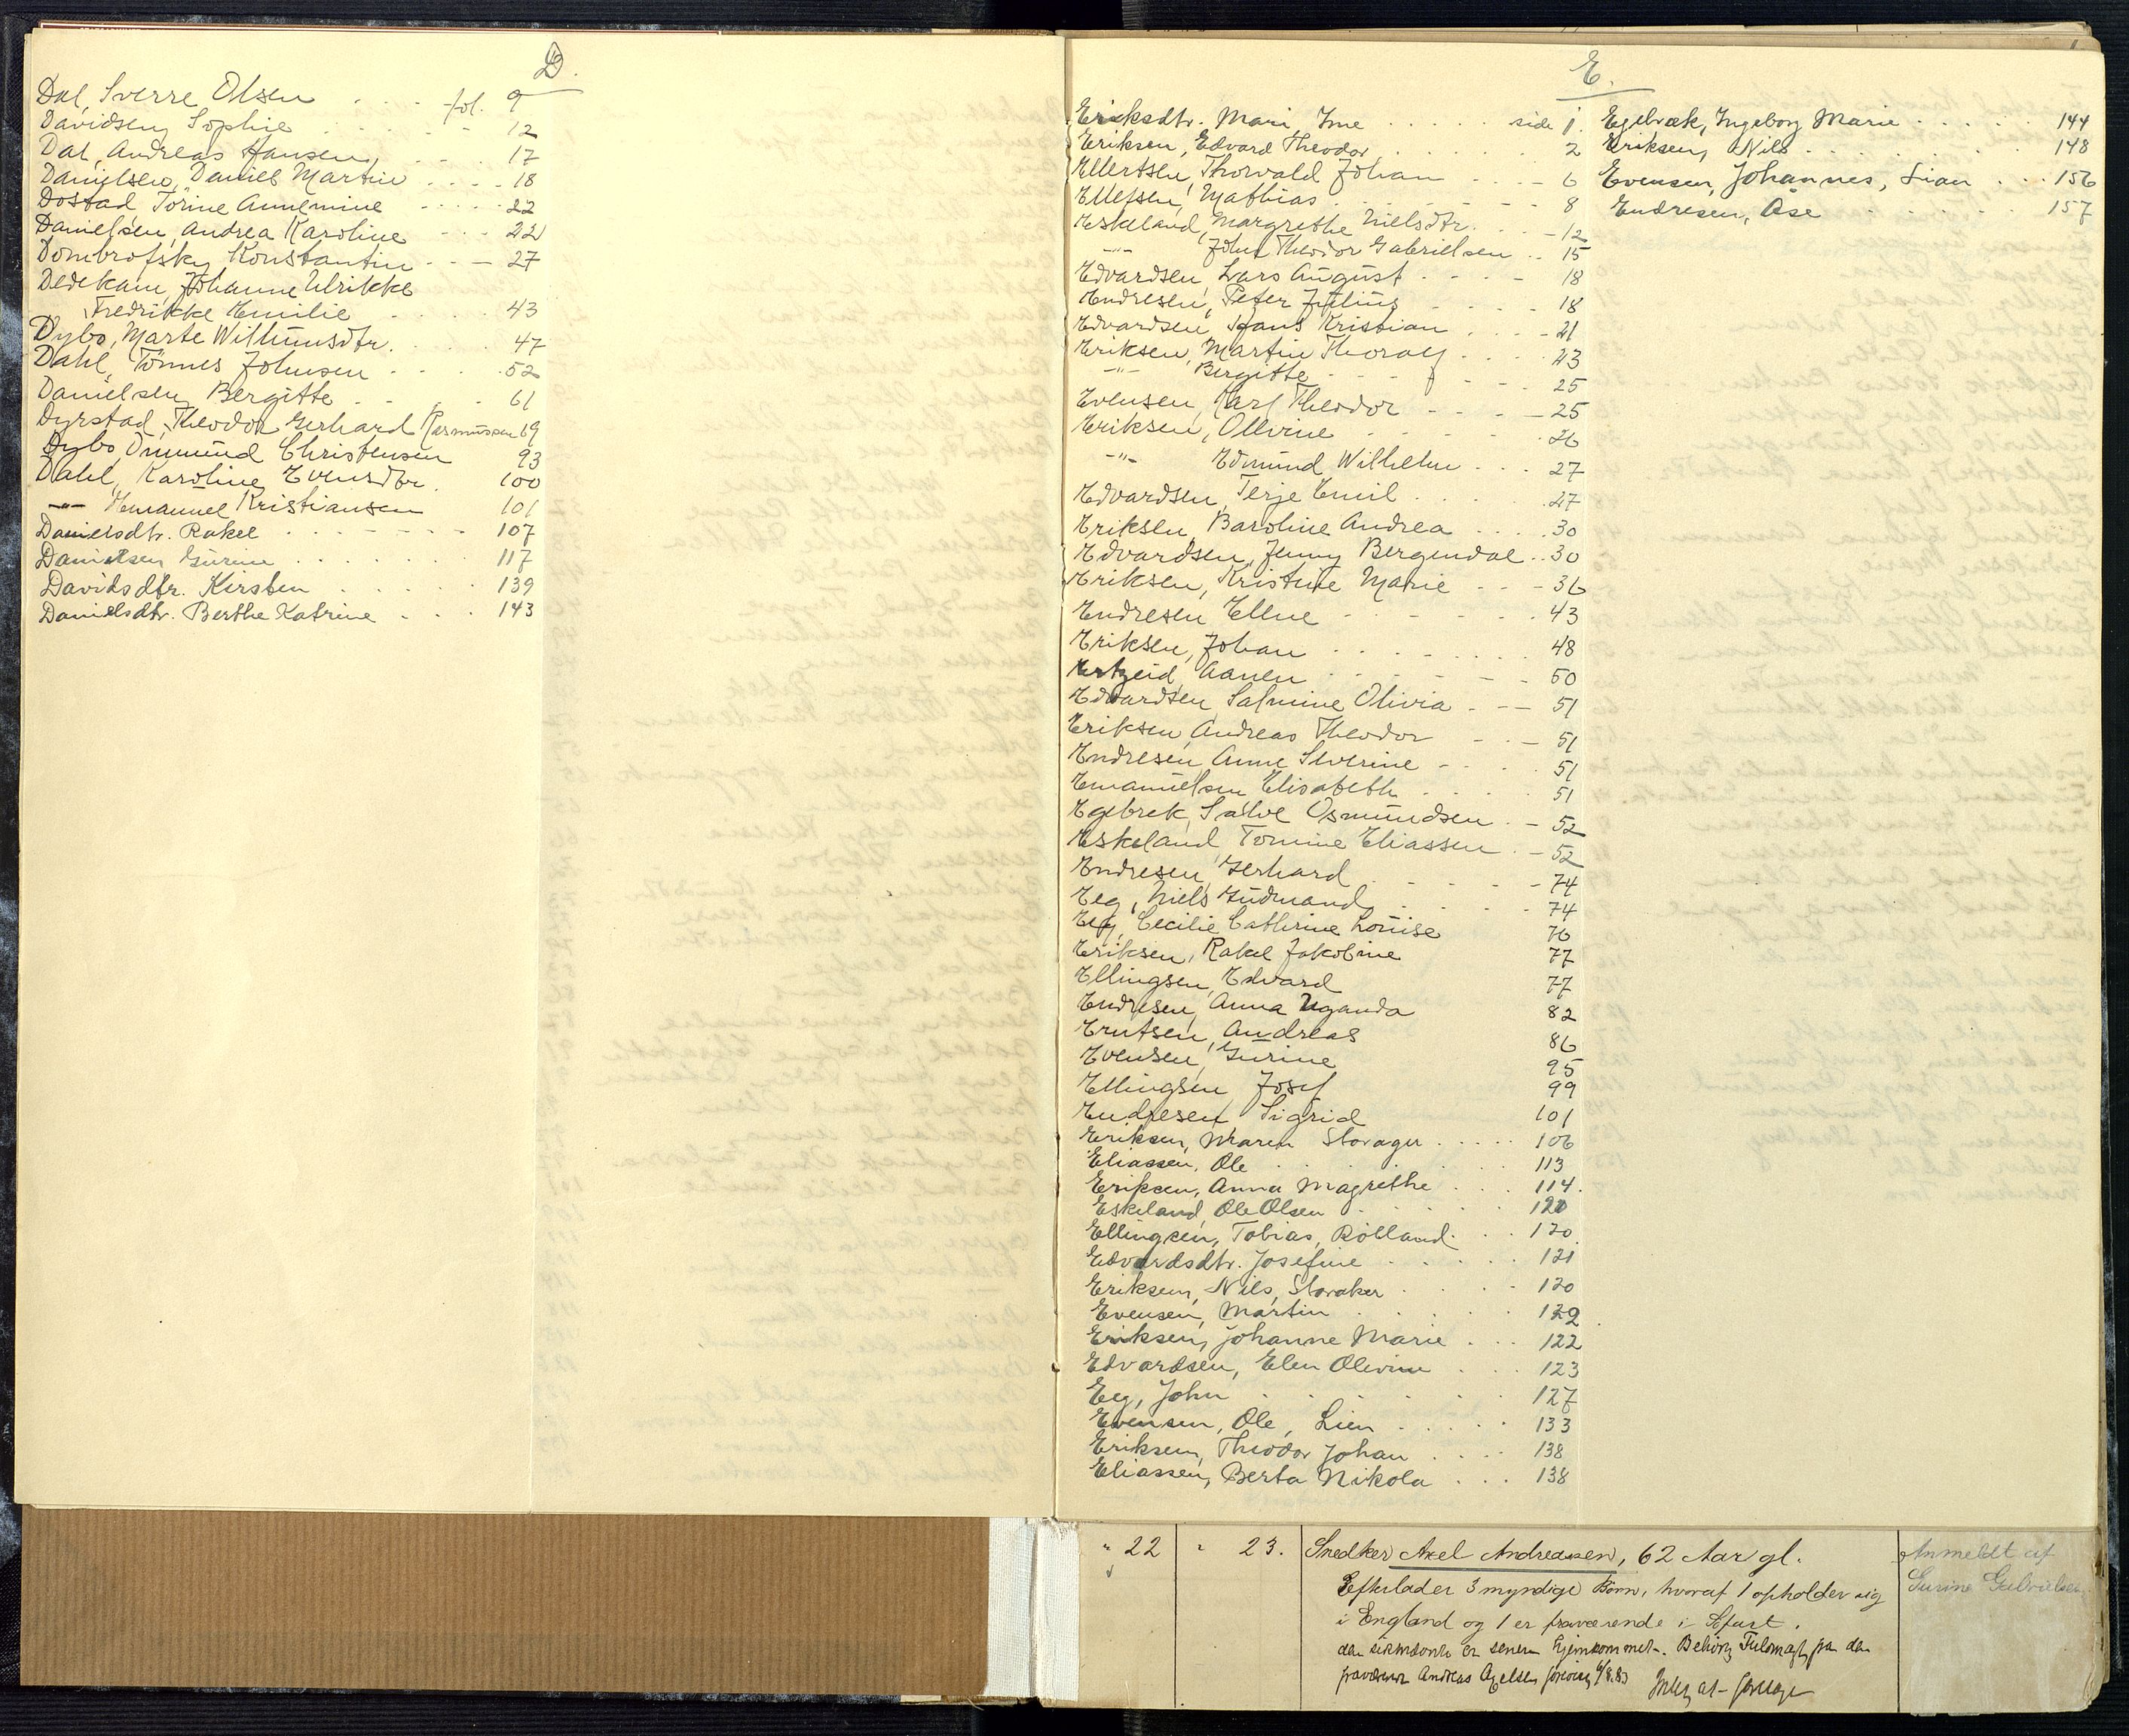 D.
Dal, Sverre Olsen . . . fol. 9
Davidsen, Sophie . . . 12
Dal, Andreas Hansen, . . . 17
Danielsen, Daniel Martin . . . 18
Dostad Torine Annemine . . . 22
Danielsen, Andrea Karoline . . . 22
Dombrofsky Konstantin . . . 27
Dedekam, Johanne Ulrikke
Fredrikke Emilie . . . 43
Dybo, Marte Wilhumsdtr. . . . 47
Dahl, Tönnes Johnsen . . . 52
Danielsen, Bergitte . . . 61
Dyrstad, Theodor Gerhard Rasmussen 69
Dybo, Ommund Christensen 93
Dahl, Karoline Evensdtr. 100
-"- Emanuel Kristiansen 101
Danielsdtr. Rakel . . . 107
Danielsen Gurine . . . 117
Davidsdtr. Kirsten . . . 139
Danielsdtr. Berthe Katrine . . . 143
E.
Eriksdtr. Mari, Ime . . . side 1.
Eriksen, Edvard Theodor . . . 2
Ellertsen, Thorvald Johan . . . 6
Ellefsen, Mathias . . . 8
Eskeland, Margrethe Nielsdtr. . . . 12
-"- John Theodor Gabrielsen . . 15
Edvardsen, Lars August . . . 18
Endresen, Peter Julius . . . 18
Edvardsen, Hans Kristian . . . 21
Eriksen, Martin Thoralf . . . 23
-"- Bergitte . . . 25
Evensen, Karl Theodor . . . 25
Eriksen, Ollvine . . . 26
-"- Edmund Wilhelm . . . 27
Edvardsen, Terje Emil . . . 27
Eriksen, Baroline Andrea . . . 30
Edvardsen, Jenny Bergendal . . 30
Eriksen, Kristine Marie . . . 36
Endresen Elline . . . 43
Eriksen, Johan . . . 48
Ertzeid, Aanen . . . 50
Edvardsen Salmine Olivia . . . 51
Eriksen, Andreas Theodor . . . 51
Endresen, Anne Severine . . . 51
Emanuelsen Elisabeth . . . 51
Egebrek, Salve Osmundsen . . . 52
Eskeland, Tomine Eliassen . . . 52
Endresen, Gerhard . . . 74
Eeg, Niels Gudmand, . . . 74
Eeg, Cecilie Cathrine Louise 76
Eriksen, Rakel Jakobine 77
Ellingsen, Edvard 77
Endresen, Anna Uganda 82
Erutsen, Andreas 86
Evensen, Gurine 95
Ellingsen, Josef 99
Endresen, Sigrid 101
Eriksen, Maren Storager . . . 106
Eliassen, Ole . . . 113
Eriksen, Anna Magrethe . . . 114.
Eskeland, Ole Olsen . . . 120
Ellingsen, Tobias, Rölland . . . 120.
Edvardsdtr. Josefine . . . 121
Eriksen, Nils, Storaker . . . 120
Evensen, Martin . . . 122
Eriksen, Johanne Marie . . . 122
Edvardsen, Elen Olevine . . . 123
Eeg, John . . . 127
Evensen, Ole, Lien . . . 133
Eriksen, Theodor Johan . . . 138
Eliassen, Berta Nikola . . . 138
Egebræk, Ingeborg Marie . . . 144
Eriksen, Nils . . . 148
Evensen, Johannes, Lian . . . 156
Endresen, Åse . . . 157
" 22 " 23. Snedker Axel Andreasen, 62 Aar gl.
Efterlader 3 myndige Börn, hvoraf 1 opholder sig
i England og 1 er fraværende i Söfart.
den er senere hjemkommet. Behörig Fuldmagt fra den
Andreas Axelsen 8.83
Anmeldt af
Gurine Gabrielsen.